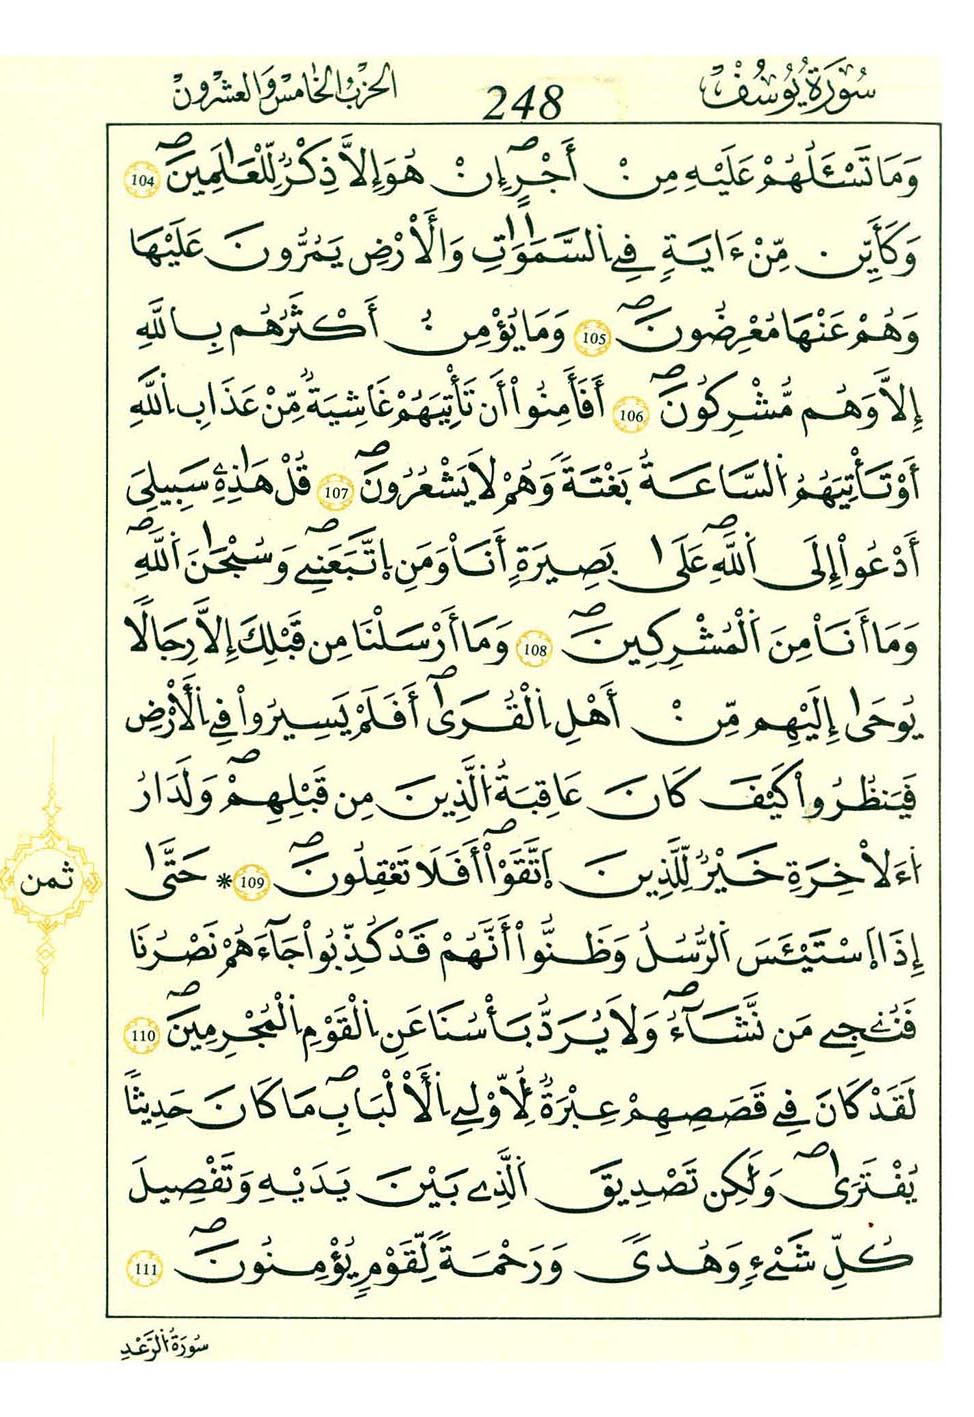 سُورَةُ يُوسُفَ 248 الحزب الخامس والعشرون
وَمَا تَسْـَٔلُهُمْ عَلَيْهِ مِنْ أَجْرٍۖ إِنْ هُوَ إِلَّا ذِكْرٌ لِّلْعَٰلَمِينَۖ 104
وَكَأَيِّن مِّنْ ءَايَةٍ فِے اِ۬لسَّمَٰوَٰتِ وَالْأَرْضِ يَمُرُّونَ عَلَيْهَا
وَهُمْ عَنْهَا مُعْرِضُونَۖ 105 وَمَا يُؤْمِنُ أَكْثَرُهُم بِاللَّهِ
إِلَّا وَهُم مُّشْرِكُونَۖ 106 أَفَأَمِنُوٓاْ أَن تَأْتِيَهُمْ غَٰشِيَةٌ مِّنْ عَذَابِ اِ۬للَّهِ
أَوْ تَأْتِيَهُمُ اُ۬لسَّاعَةُ بَغْتَةً وَهُمْ لَا يَشْعُرُونَۖ 107 قُلْ هَٰذِهِۦ سَبِيلِيَ
أَدْعُواْ إِلَى اَ۬للَّهِۖ عَلَىٰ بَصِيرَةٍ أَنَا۠ وَمَنِ اِ۪تَّبَعَنِےۖ وَسُبْحَٰنَ اَ۬للَّهِۖ
وَمَا أَنَا۠ مِنَ اَ۬لْمُشْرِكِينَۖ 108 وَمَا أَرْسَلْنَا مِن قَبْلِكَ إِلَّا رِجَالًا
يُوحَىٰ إِلَيْهِم مِّنْ أَهْلِ اِ۬لْقُرَىٰۖ أَفَلَمْ يَسِيرُواْ فِے اِ۬لْأَرْضِ
فَيَنظُرُواْ كَيْفَ كَانَ عَٰقِبَةُ اُ۬لَّذِينَ مِن قَبْلِهِمْۖ وَلَدَارُ
اُ۬ءَلَاخِرَةِ خَيْرٌ لِّلَّذِينَ اَ۪تَّقَوْاْۖ أَفَلَا تَعْقِلُونَۖ 109 * حَتَّىٰ
ثمن
إِذَا اَ۪سْتَيْـَٔسَ اَ۬لرُّسُلُ وَظَنُّواْ أَنَّهُمْ قَدْ كُذِّبُواْ جَآءَهُمْ نَصْرُنَا
فَنُنجِے مَن نَّشَآءُۖ وَلَا يُرَدُّ بَأْسُنَا عَنِ اِ۬لْقَوْمِ اِ۬لْمُجْرِمِينَۖ 110
لَقَدْ كَانَ فِے قَصَصِهِمْ عِبْرَةٌ لِّأُوْلِے اِ۬لْأَلْبَٰبِۖ مَا كَانَ حَدِيثًا
يُفْتَرَىٰۖ وَلَٰكِن تَصْدِيقَ اَ۬لَّذِے بَيْنَ يَدَيْهِ وَتَفْصِيلَ
كُلِّ شَےْءٍ وَهُدًى وَرَحْمَةً لِّقَوْمٍ يُؤْمِنُونَۖ 111
سُورَةُ اُ۬لرَّعْدِ